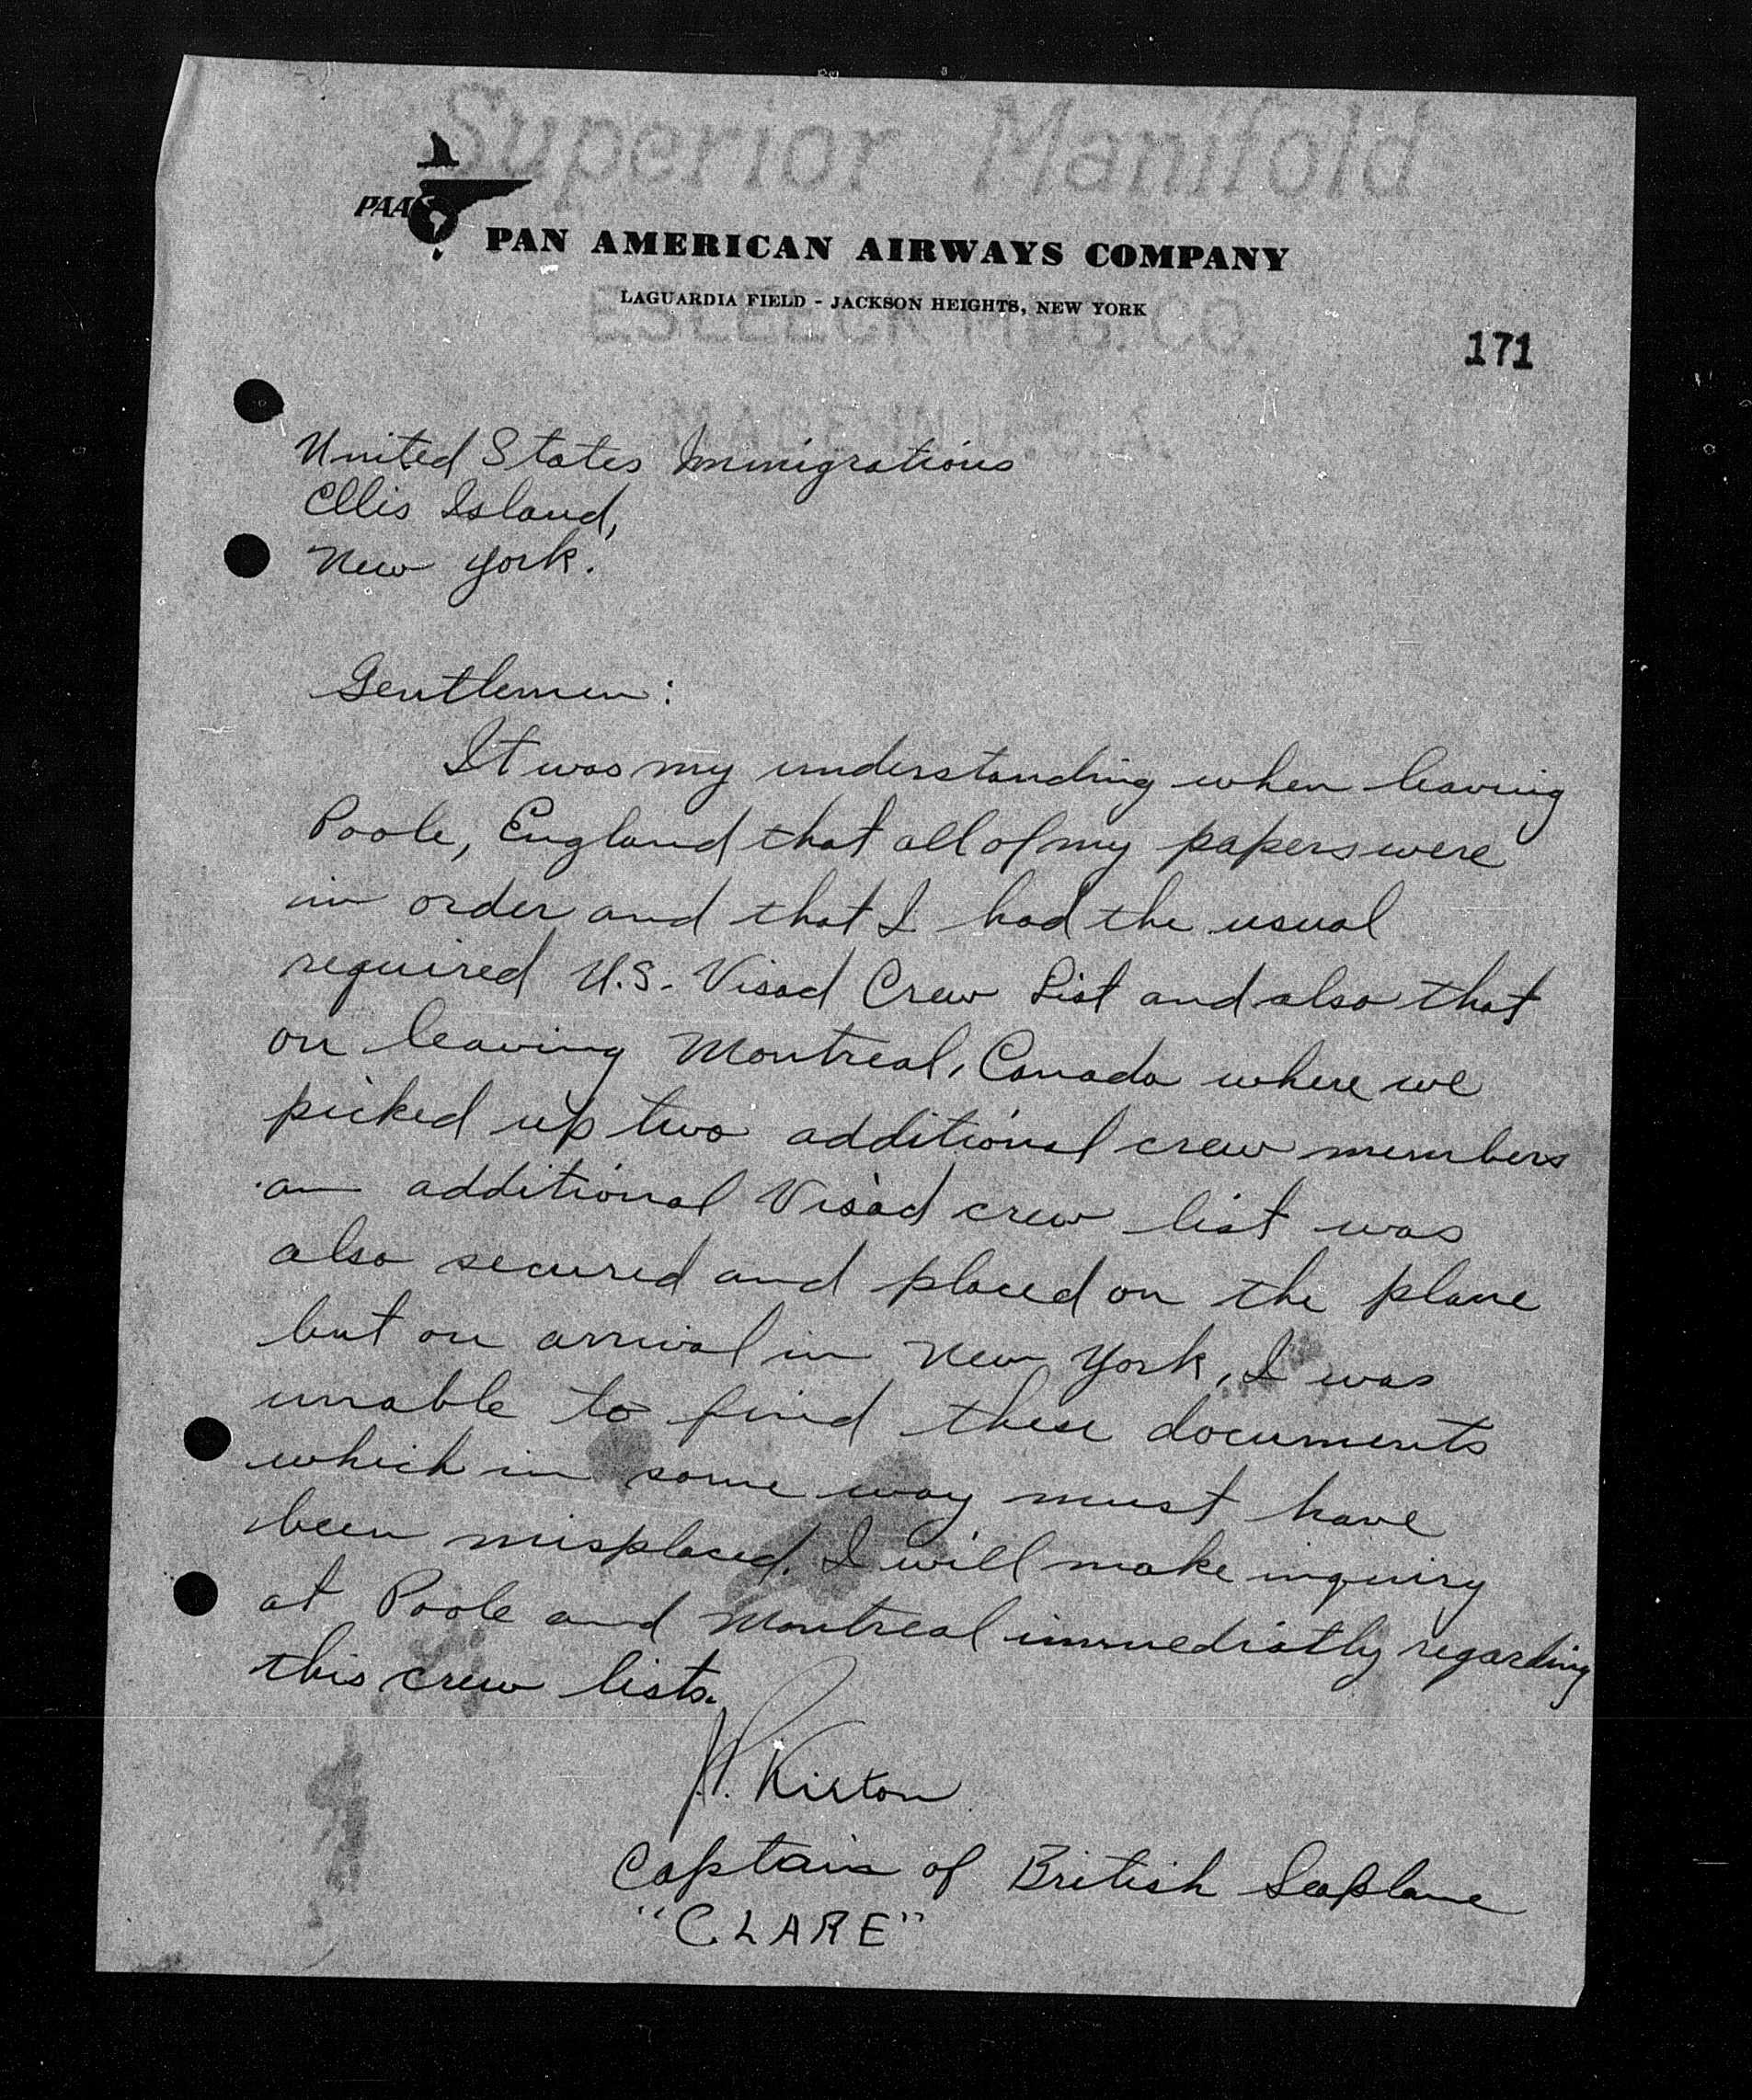 Superior Manifold
PAA
PAN AMERICAN AIRWAYS COMPANY
LAGUARDIA FIELD - JACKSON HEIGHTS, NEW YORK
ESLEECK MFG. CO.
171
MADE IN U.S.A.
United States Immigrations
Ellis Island,
New York.
Gentlemen:
It was my understanding when leaving
Poole, England that all of my papers were
in order and that I had the usual
required U.S. Visad Crew List and also that
on leaving Montreal, Canada where we
picked up two additional crew members
an additional Visad crew list was
also secured and placed on the plane
but on arrival in New York, I was
unable to find these documents
which in some way must have
been misplaced. I will make inquiry
at Poole and Montreal immediatly regarding
this crew lists.
Captain of British Seaplane
"CLARE"